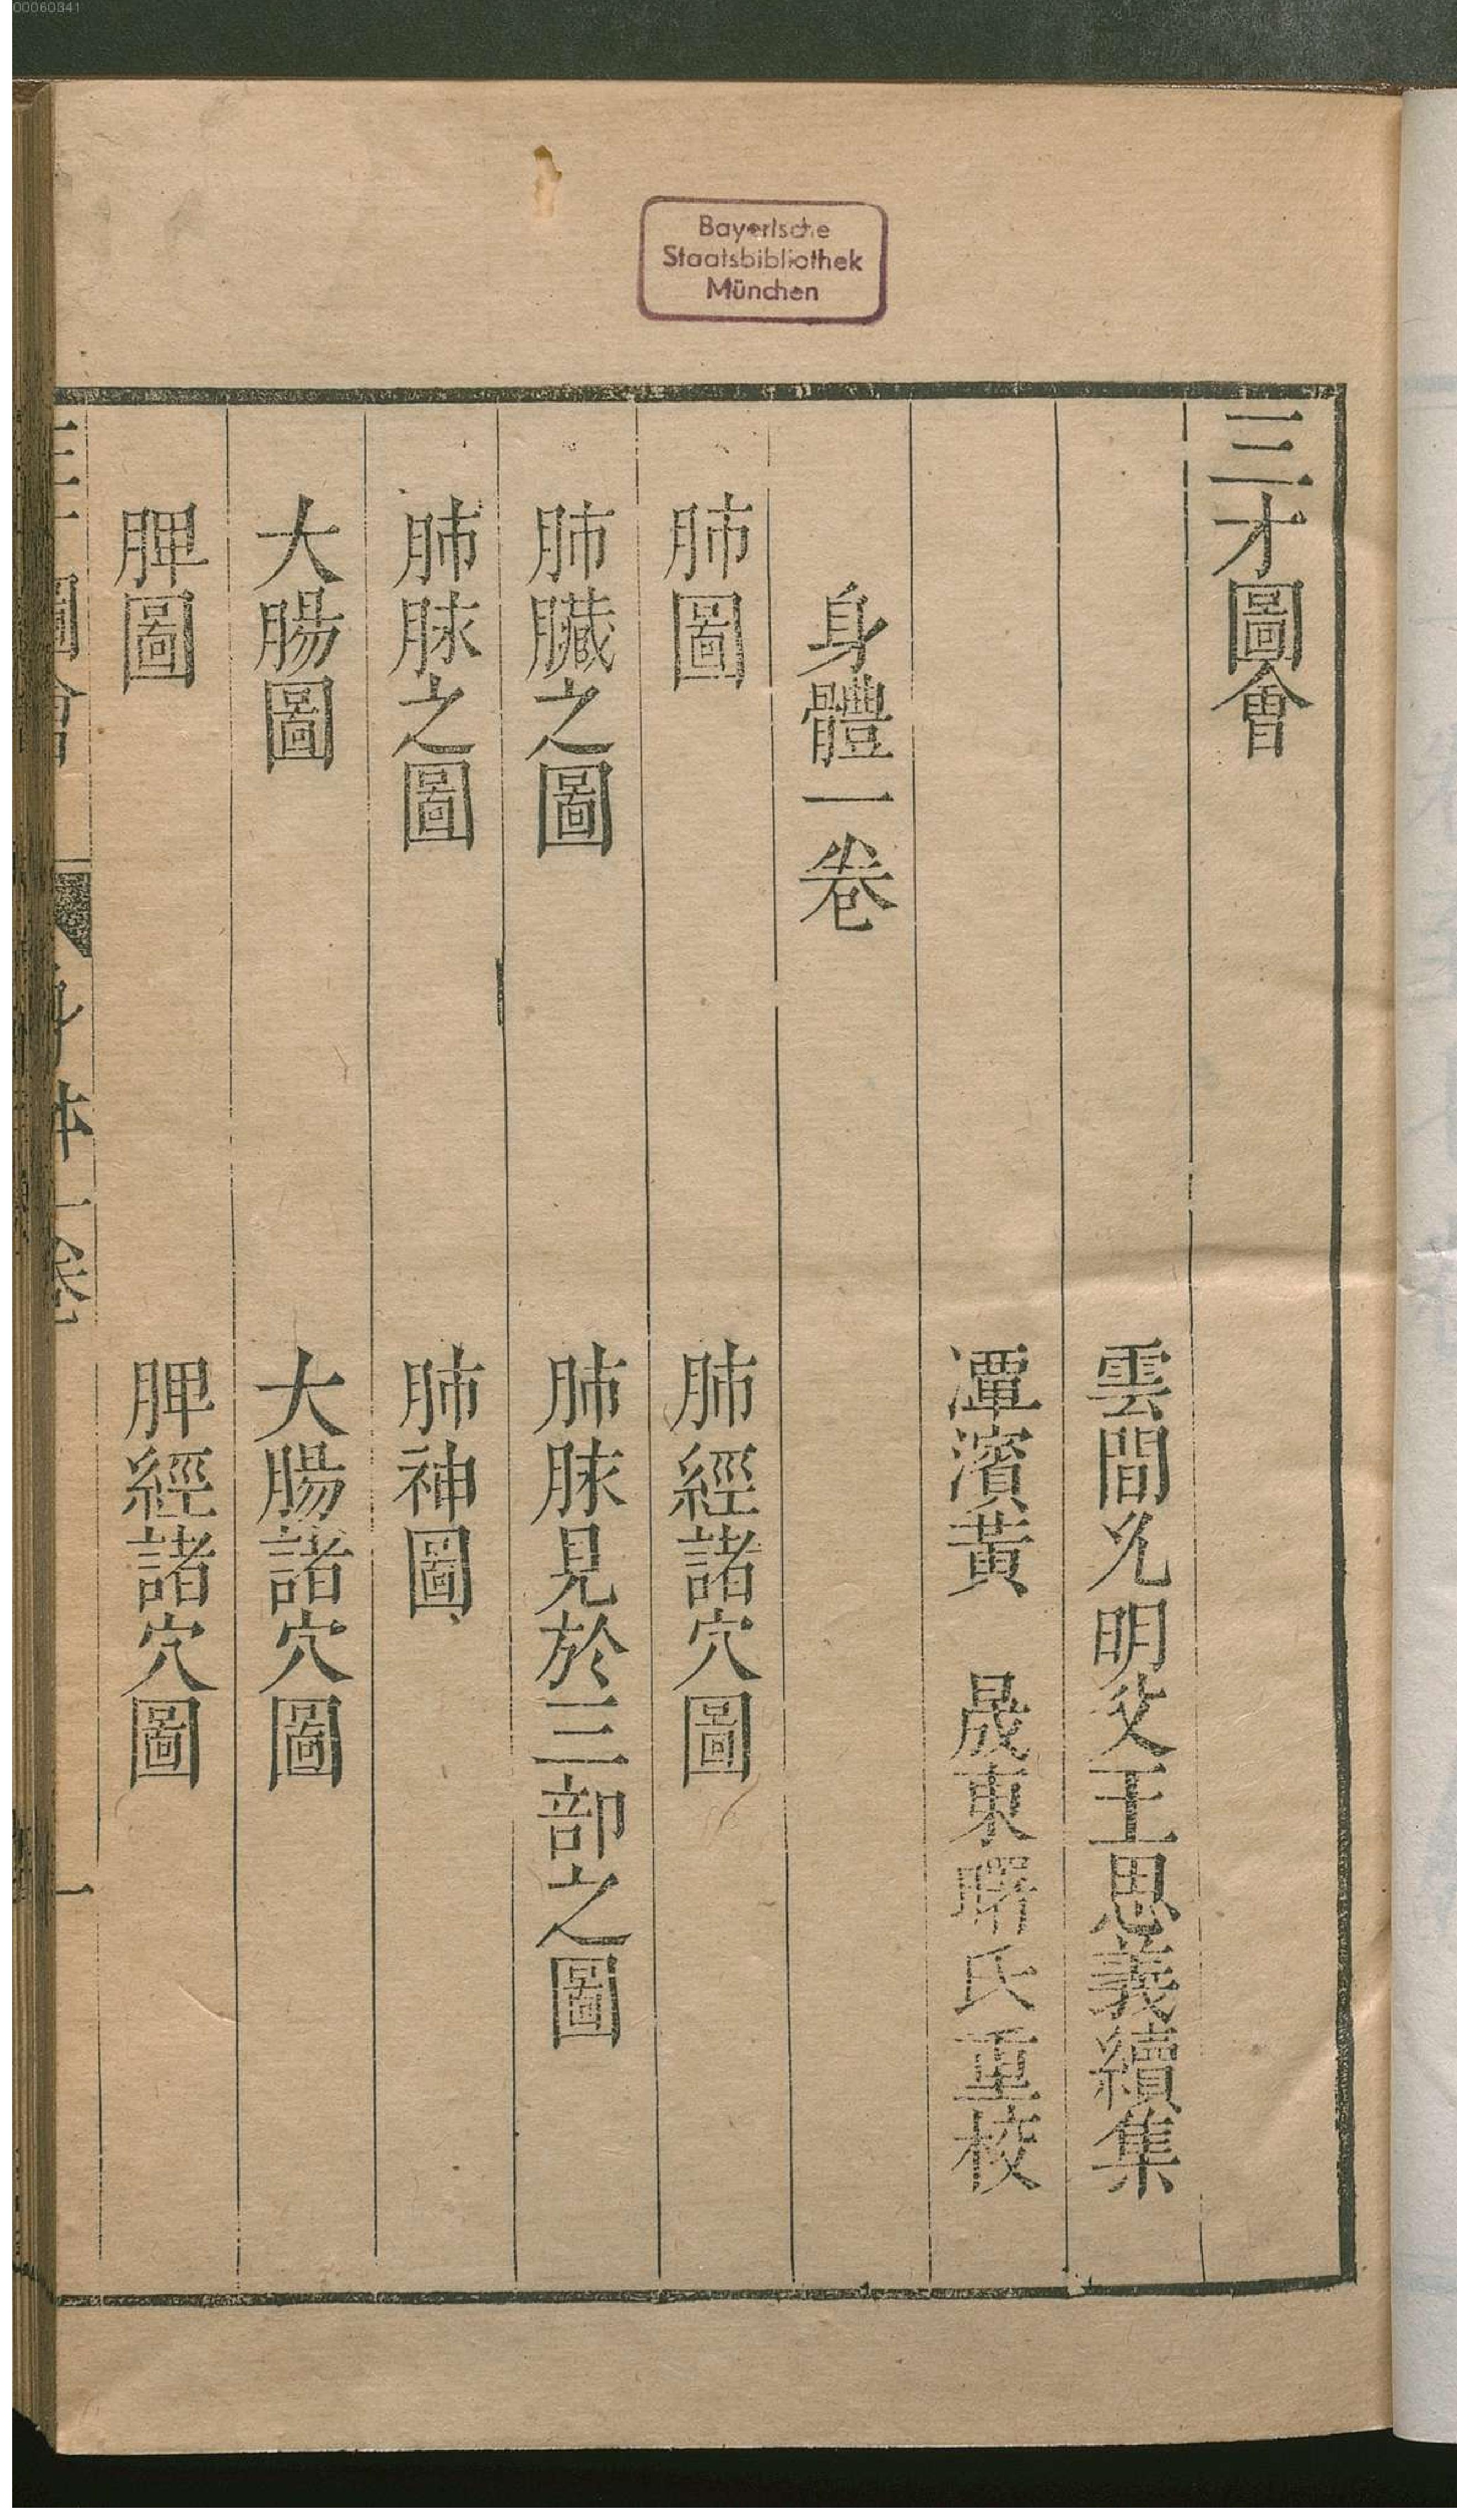 00060341
Bayerische
Staatsbibliothek
München
三才圖會
雲間允明父王思義續集
潭濱黃 晟東曙氏重校
身體一卷
肺圖
肺經諸穴圖
肺臟之圖
肺脉見於三部之圖
肺脉之圖
肺神圖
大腸圖
大腸諸穴圖
脾圖
脾經諸穴圖
三才圖會 身体一卷 一